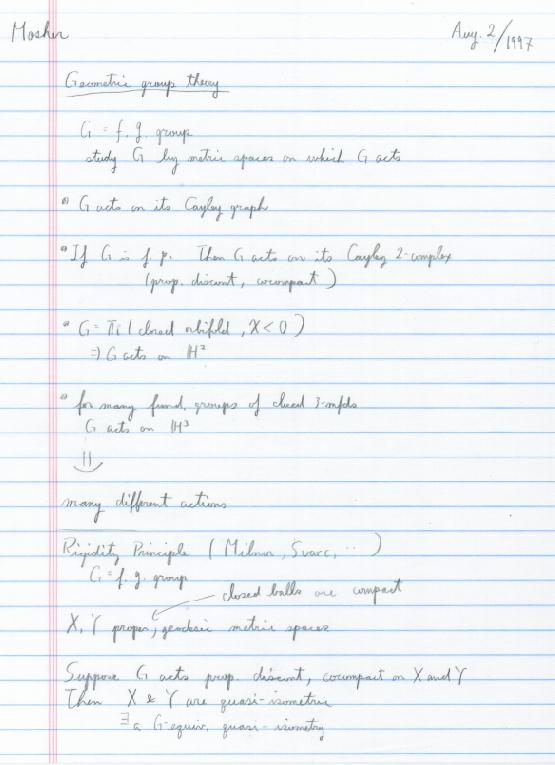 Mosher Aug. 2/1997
Geometric group theory
G = f. g. group
study G by metric spaces on which G acts
• G acts on its Cayley graph
• If G is f. p. Then G acts on its Cayley 2-complex
(prop. discont, cocompact)
• G = π₁ (closed orbifold, χ < 0)
⇒ G acts on ℍ²
• for many fund. groups of closed 3-mfds
G acts on ℍ³
⇓
many different actions
Rigidity Principle (Milnor, Svarc, ··)
G = f. g. group
closed balls are compact
X, Y proper, geodesic metric spaces
Suppose G acts prop. discont, cocompact on X and Y
Then X & Y are quasi-isometric
∃ a G-equiv. quasi-isometry